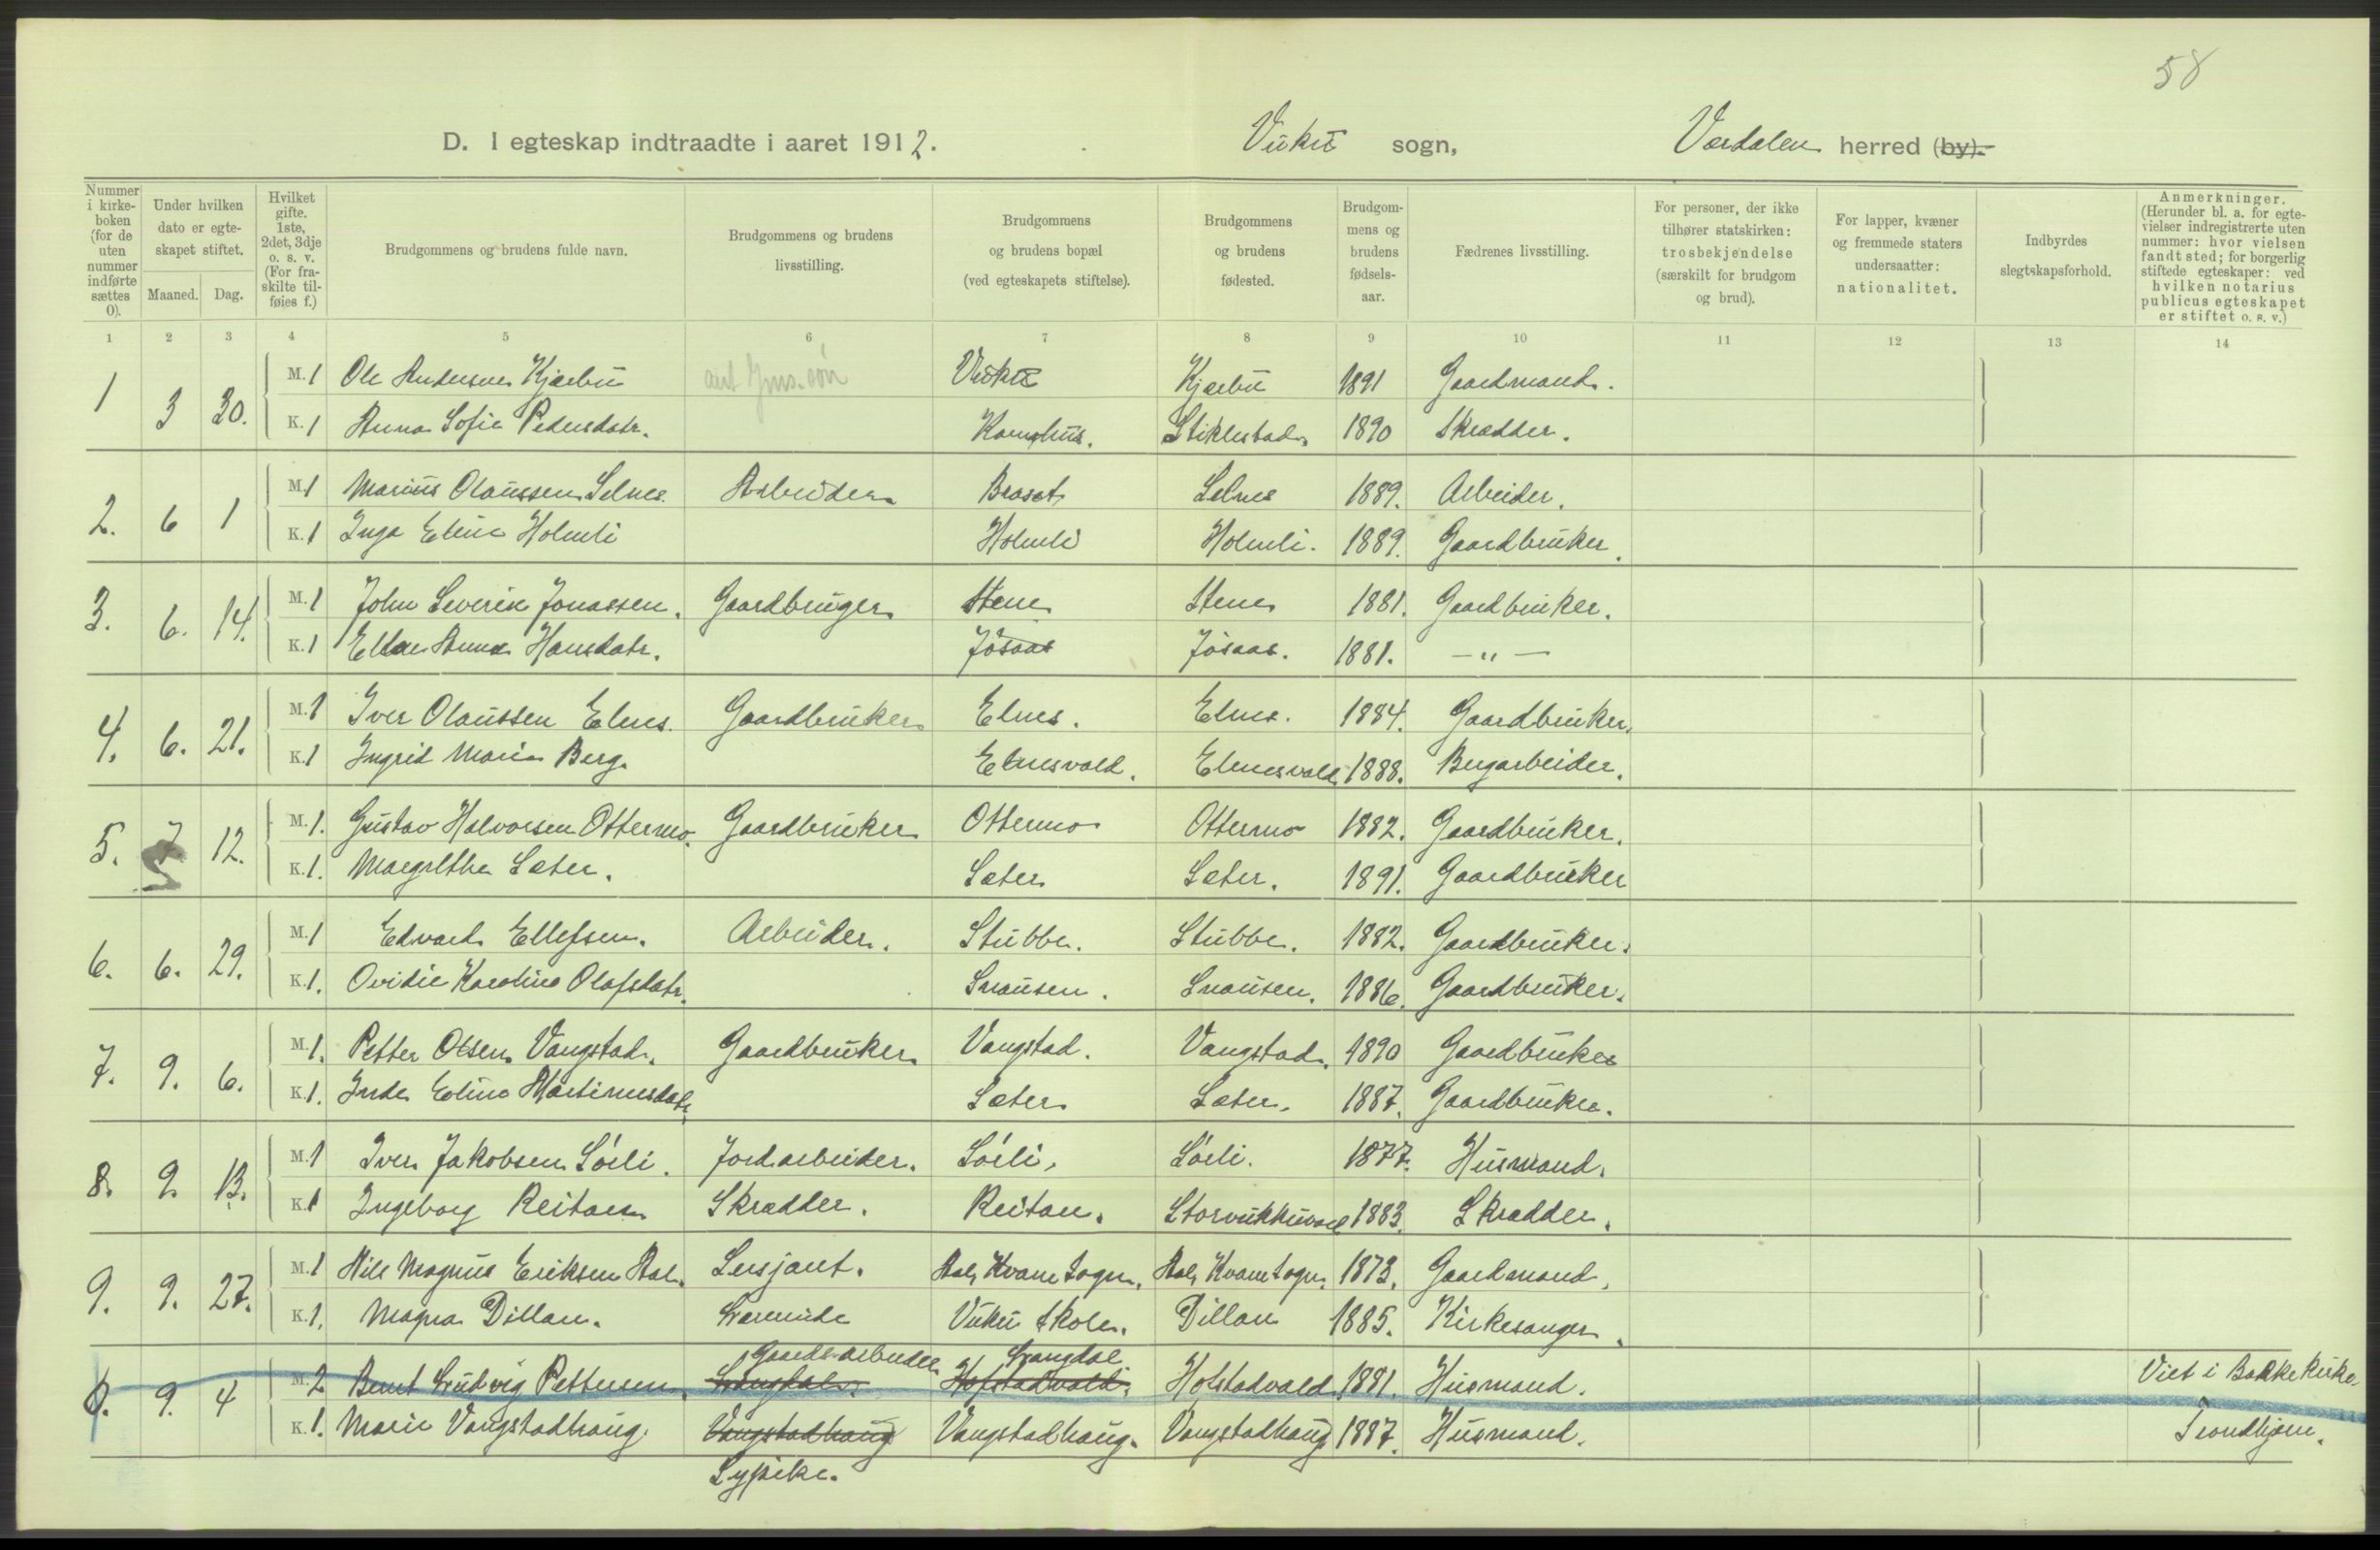 58
D. I egteskap indtraadte i aaret 1912. Vuku sogn, Værdalen herred (by).
Nummer i kirkeboken (for de uten nummer indførte sættes 0).
Under hvilken dato er egteskapet stiftet.
Maaned. Dag.
Hvilket gifte. 1ste, 2det, 3dje o. s. v. (For fraskilte tilføies f.)
Brudgommens og brudens fulde navn.
Brudgommens og brudens livsstilling.
Brudgommens og brudens bopæl (ved egteskapets stiftelse).
Brudgommens og brudens fødested.
Brudgommens og brudens fødselsaar.
Fædrenes livsstilling.
For personer, der ikke tilhører statskirken: trosbekjendelse (særskilt for brudgom og brud).
For lapper, kvæner og fremmede staters undersaatter: nationalitet.
Indbyrdes slegtskapsforhold.
Anmerkninger. (Herunder bl. a. for egtevielser indregistrerte uten nummer: hvor vielsen fandt sted; for borgerlig stiftede egteskaper: ved hvilken notarius publicus egteskapet er stiftet o. s. v.)
1 2 3 4 5 6 7 8 9 10 11 12 13 14
1 3 30. M. 1 Ole Andersen Kjærbu Vuku Kjærbu 1891 Gaardmand.
K. 1 Anna Sofie Pedersdatr. Kornhus. Stiklestad. 1890 Skrædder.
2. 6 1 M. 1 Marius Olaussen Selnes. Arbeider Braset Selnes 1889. Arbeider.
K. 1 Inga Eline Holmli Holmli Holmli. 1889. Gaardbruker.
3. 6. 14. M. 1 John Severin Jonassen. Gaardbruger Stene Stene 1881. Gaardbruker.
K. 1 Ellen Anna Hansdatr. Jøsaas Jøsaas. 1881. — " —
4. 6. 21. M. 1 Iver Olaussen Elnes. Gaardbruker Elnes. Elnes. 1884. Gaardbruker.
K. 1 Ingrid Marie Berg. Elnesvald. Elnesvald 1888. Bergarbeider.
5. 7 12. M. 1. Gustav Halvorsen Ottermo. Gaardbruker Ottermo Ottermo 1882. Gaardbruker.
K. 1. Margrethe Sæter. Sæter Sæter. 1891. Gaardbruker
6. 6. 29. M. 1 Edvard Ellefsen. Arbeider. Stubbe. Stubbe. 1882. Gaardbruker.
K. 1. Ovidie Karoline Olafsdatr. Snausen. Snausen. 1886. Gaardbruker.
7. 9. 6. M. 1. Petter Olsen Vangstad. Gaardbruker Vangstad. Vangstad. 1890 Gaardbruker
K. 1. Inda Eline Martinusdatr. Sæter Sæter. 1887. Gaardbruker.
8. 9. 13. M. 1 Iver Jakobsen Sørli. Jordarbeider. Sørli. Sørli. 1877. Husmand.
K. 1 Ingeborg Reitan Skrædder. Reitan. Storvukkuvald 1883. Skrædder.
9. 9. 27. M. 1 Nils Magnus Eriksen Aal. Sersjant. Aal, Kvam sogn. Aal, Kvam sogn. 1873. Gaardmand.
K. 1. Magna Dillan. Lærerinde Vuku Skole. Dillan 1885. Kirkesanger.
Gaardsarbeider Langdal
0. 9. 4 M. 2 Bernt Ludvig Pettersen. Langdal. Hofstadvald. Hofstadvald 1881. Husmand. Viet i Bakke kirke.
K. 1. Marie Vangstadhaug. Vangstadhaug Vangstadhaug. Vangstadhaug 1887. Husmand. Trondhjem.
Sypike.